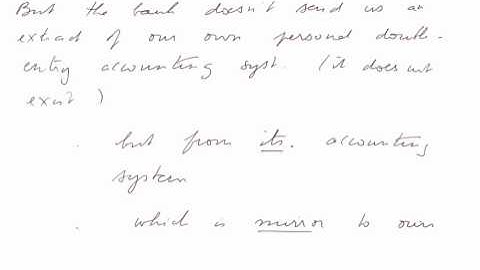 But the bank doesn't send us an
extract of our own personal double-
entry accounting syst. (it does not
exist)
. but from its. accounting
system
. which is mirror to ours